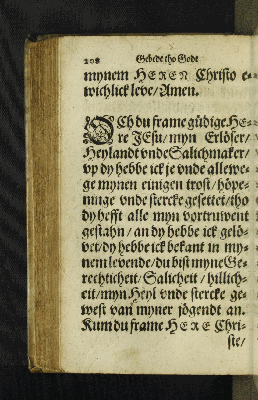 208 Gebede tho Godt
mynem HEREN Christo e-
wichlick leve/Amen.
OCh du frame güdige HE-
re JEsu/myn Erlöser/
Heylandt vnde Salichmaker/
vp dy hebbe ick je vnde allewe-
ge mynen einigen trost/höpe-
ninge vnde stercke gesettet/tho
dy hefft alle myn vortruwent
gestahn/an dy hebbe ick gelö-
vet/dy hebbe ick bekant in my-
nem levende/du bist myne Ge-
rechticheit/Salicheit/hillich-
eit/myn Heyl vnde stercke ge-
west van myner jögendt an.
Kum du frame HERE Chri-
ste/